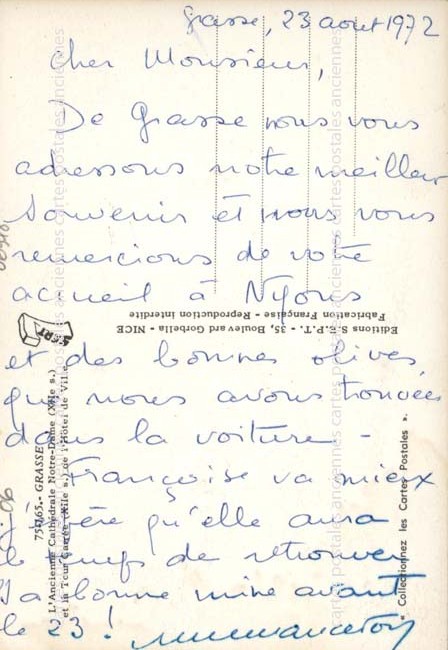 Grasse, 23 aout 1972
Cher Monsieur,
De Grasse nous vous
adressons notre meilleur
souvenir et nous vous
remercions de votre
accueil à Nyons
et des bonnes olives
que nous avons trouvées
dans la voiture -
Françoise va mieux
j'espère qu'elle aura
le temps de retrouver
sa bonne mine avant
le 23!
Editions S.E.P.T. - 35, Boulevard Gorbella - NICE
Fabrication Française - Reproduction interdite
SEPT
75-1/65.- GRASSE
L'Ancienne Cathédrale Notre-Dame (XIIe s.)
et la Tour Carrée (XIIe s.) de l'Hôtel de Ville
« Collectionnez les Cartes Postales ».
cartes postales anciennes
06